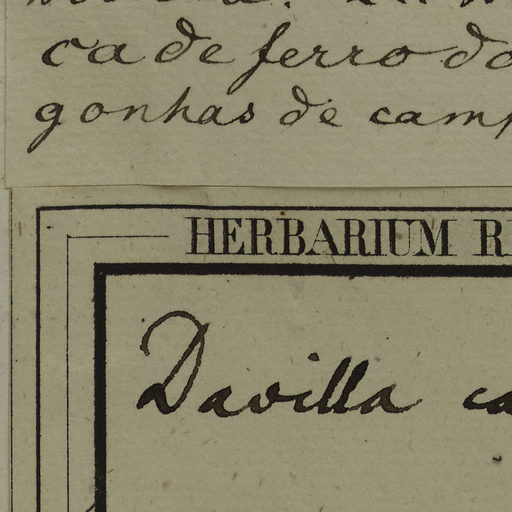 ca de ferro do
gonhas de camp
HERBARIUM R
Davilla ca